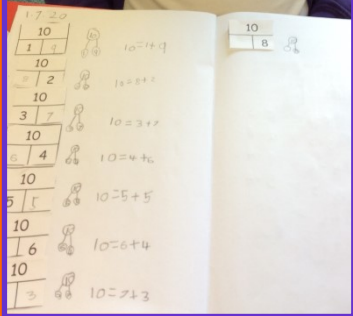 1.9.20
10
1 9 10=1+9
10
2
10
3 7 10=3+
10
6 4 10=4+6
10
5 5 10=5+5
10
6 10=6+4
10
3 10=7+3
10
8